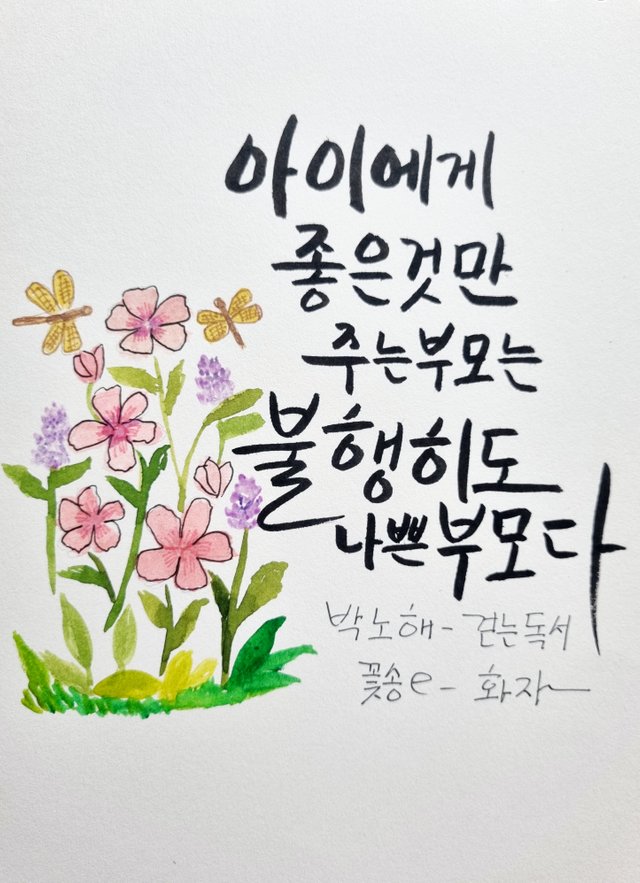 아이에게
좋은것만
주는부모는
불행히도
나쁜부모다
박노해 - 걷는독서
꽃송e - 화자